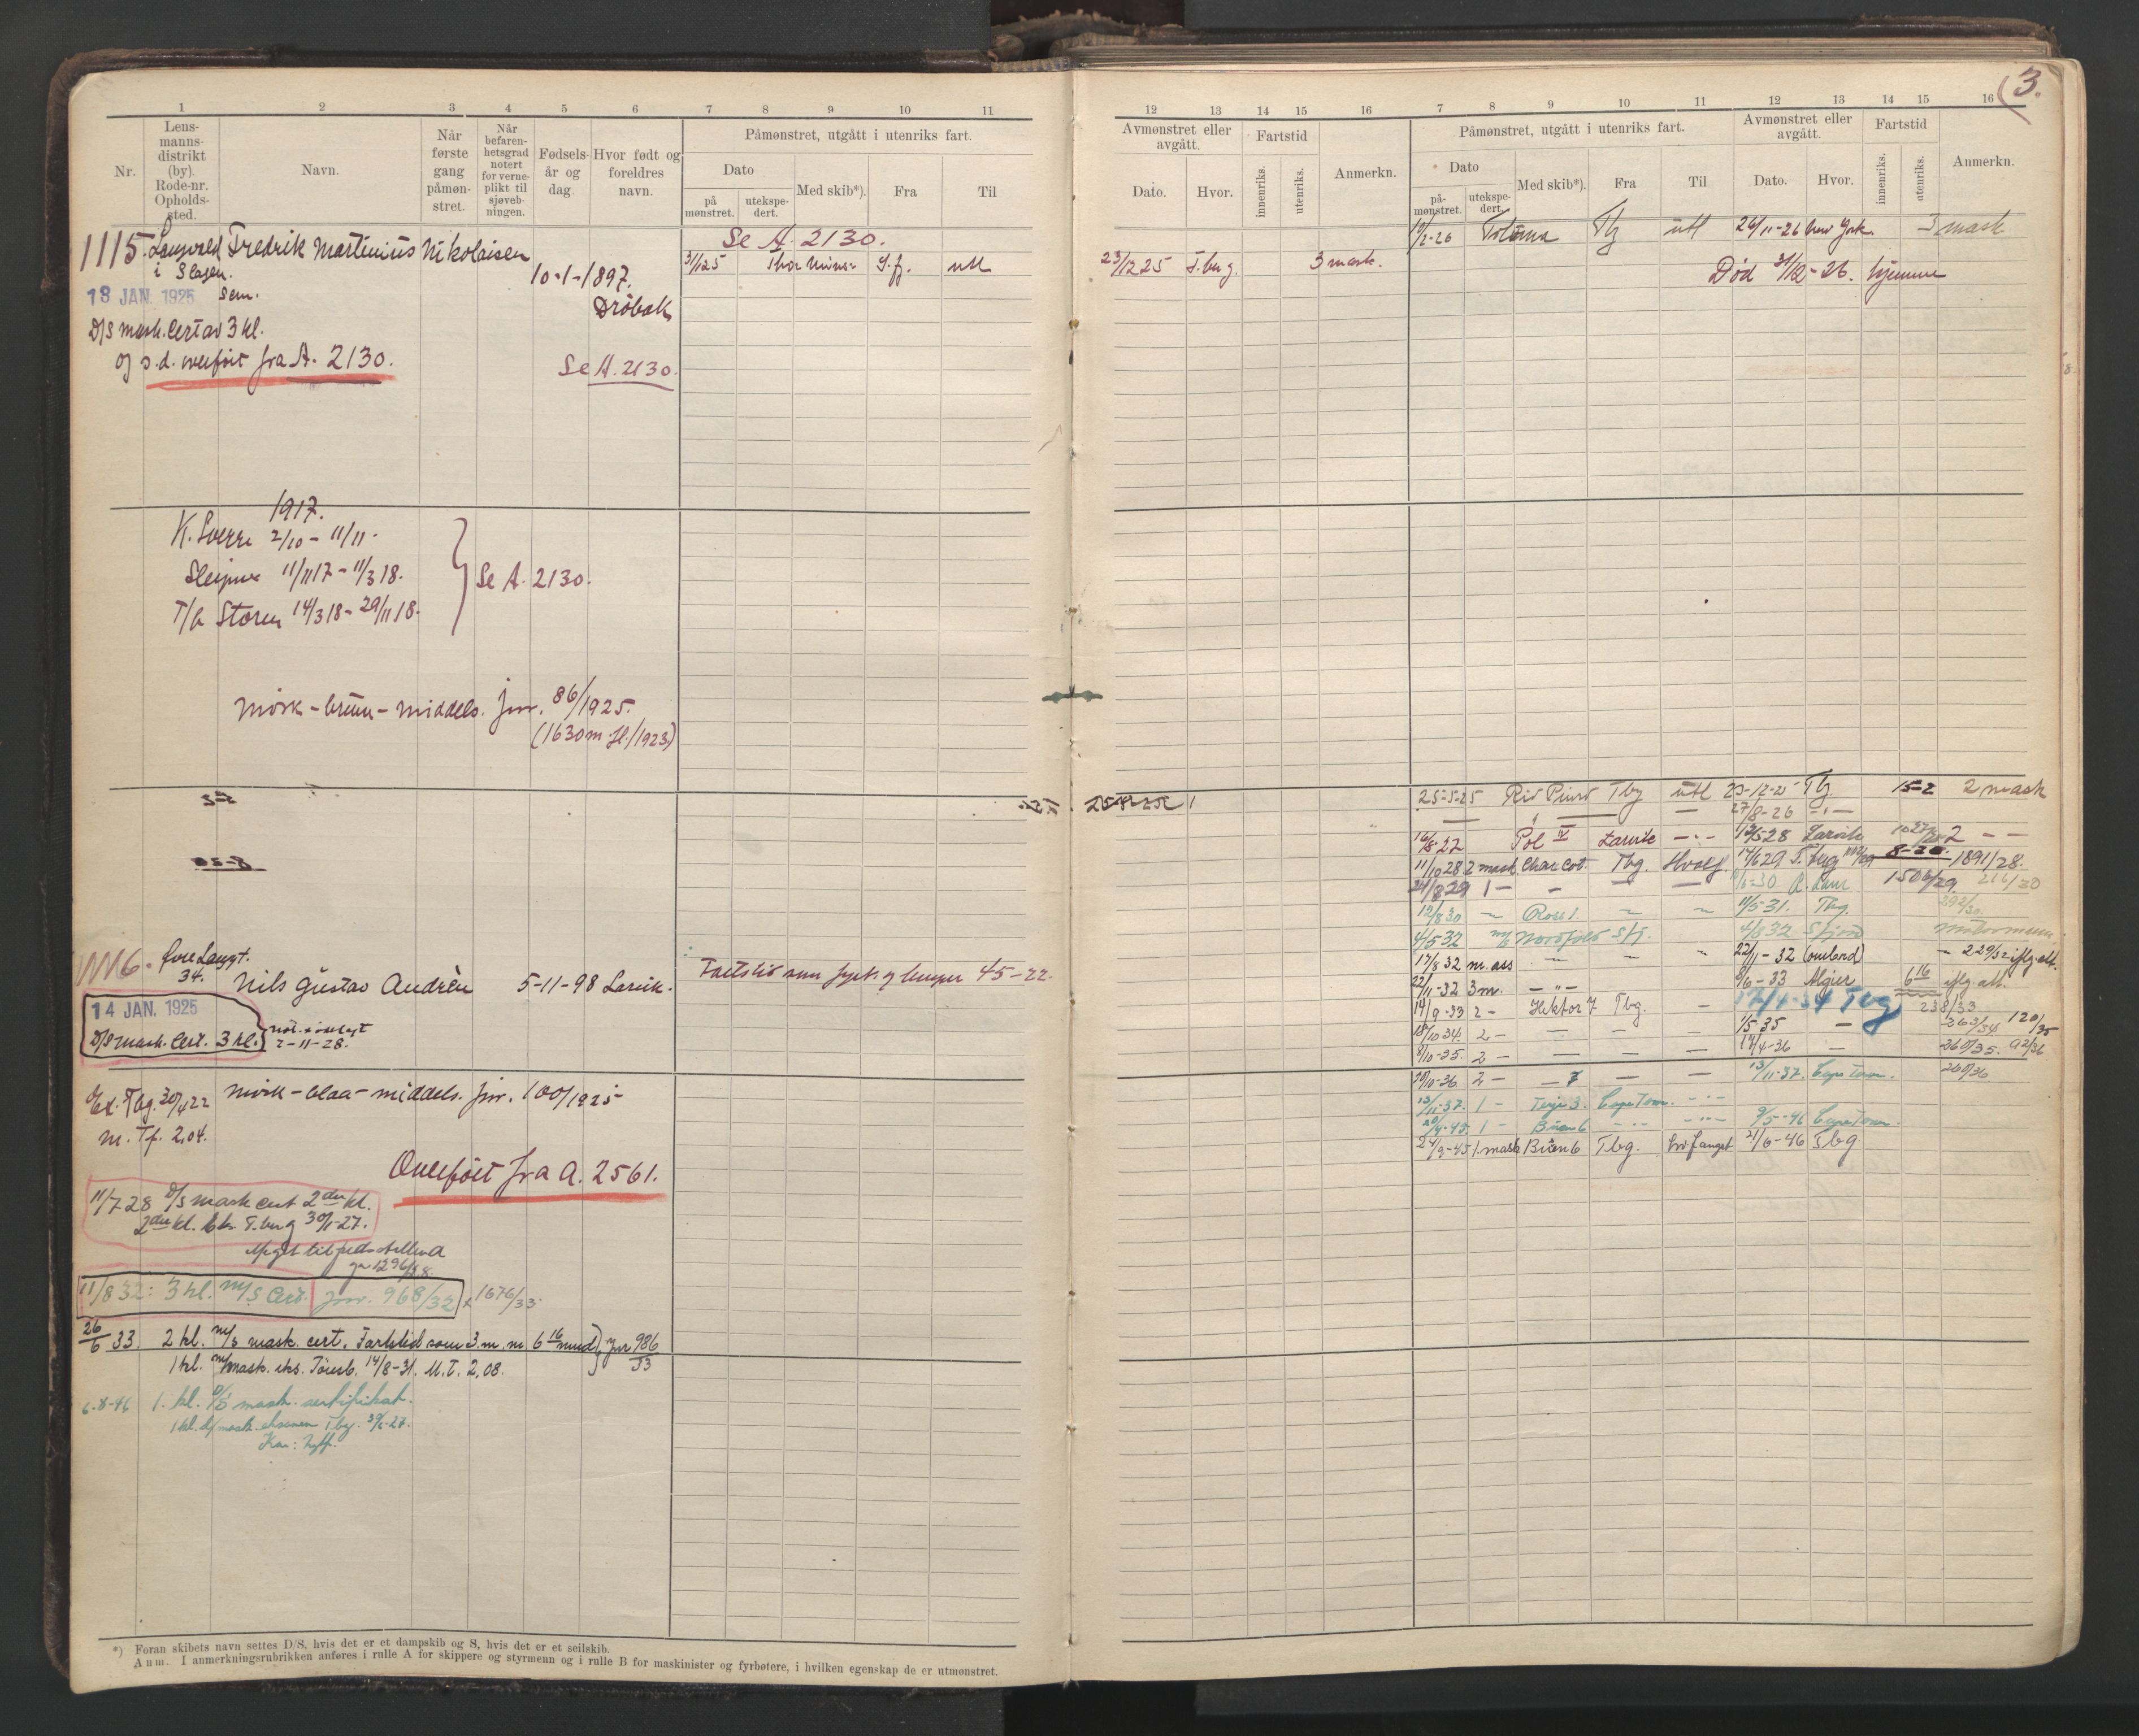 3.
1 2 3 4 5 6 7 8 9 10 11
Nr.
Lens-
manns-
distrikt
(by).
Rode-nr.
Opholds-
sted.
Navn.
Når
første
gang
påmøn-
stret.
Når
befaren-
hetsgrad
notert
for verne-
plikt til
sjøveb-
ningen.
Fødsels-
år og
dag.
Hvor født og
foreldres
navn.
Påmønstret, utgått i utenriks fart.
Dato
på
mønstret.
utekspe-
dert.
Med skib*).
Fra
Til
1115. Fredrik Martinius Nikolaisen
i Slagen.
Sem.
13 JAN. 1925
10-1-1897.
Drøbak
D/S mask. Cert av 3 kl.
og s.d. overført fra A. 2130.
Se A. 2130.
Se A. 2130.
31/1 25 S.fj. utl
1917.
K. Sverre 2/10 - 11/11 -
Sleipner 11/11 17 - 11/3 18.
T/b Storm 14/3 18 - 29/11 18.
Se A. 2130.
Mørk - brun - middels. jnr. 86/1925.
(1630 m. fl./1923)
1116.
34.
Nils Gustav Andrèn 5-11-98 Larvik.
Fartstid som fyrb. og lemper 45-22.
14 JAN. 1925
D/S mask. Cert. 3 kl.
2-11-28.
Ex. Tbg. 30/4 22
m. Tf. 2,04.
Mørk - blaa - middels. jnr. 100/1925
Overført fra A. 2561.
11/7 28 D/S mask cert 2den kl.
2den kl. Eks. T.berg 30/1-27.
Meget tilfredsstillend
jn 1296/28.
11/8 32: 3 kl. M/S Cert. jnr. 968/32 1676/33
26/6 33 2 kl. m/s mask. cert. Fartstid som 3. m. m. 6 16 mnd) jnr 986/33
1 kl. mask. eks. Tønsb. 14/8-31. M.T. 2,08.
6-8-46 1. kl. D/S mask. sertifikat.
*) Foran skibets navn settes D/S, hvis det er et dampskib og S, hvis det er et seilskib.
Anm. I anmerkningsrubrikken anføres i rulle A for skippere og styrmenn og i rulle B for maskinister og fyrbøtere, i hvilken egenskap de er utmønstret.
12 13 14 15 16 7 8 9 10 11 12 13 14 15 16
Avmønstret eller
avgått.
Dato.
Hvor.
Fartstid
innenriks.
utenriks.
Anmerkn.
Påmønstret, utgått i utenriks fart.
Dato
på-
mønstret.
utekspe-
dert.
Med skib*).
Fra
Til
Avmønstret eller
avgått.
Dato.
Hvor.
Fartstid
innenriks.
utenriks.
Anmerkn.
Tbg utl 26/11-26 New York. 3 mask
23/12 25 T.berg. 3 mask.
Død 31/12-26. hjemme
25-5-25 Tbg utl Tbg. 15-2 2 mask
27/8-26
16/8-27 Pol IV Larvik 12/5 28 Larvik
11/10 28 2 mask Charcot. Tbg. Hvalf. 17/6 29 T.berg 8-20 1891/28.
24/8 29 1 - 1506/29 216/30
12/8 30 Ross 1. 11/5-31. Tbg. 292/30
4/5 32 m/s Nordfold Sfj. 4/8 32 Sfjord
17/8 32 m. ass 22/11-32 229/32 iflg. att.
22/11-32 3 m. 9/6-33 Alger 6 16 iflg. att.
14/9-33 2 - Hektor 7 Tbg. 17/4-34 Tbg 238/33
18/10 34. 2 - 1/5 35 263/34 120/35
8/10-35. 2 - 14/4-36 260/35. 92/36
10/10-36 2 - 7 13/11-37. Cape Town. 260/36
13/11-37. 1 - Terje 3. Cape Town.
1 - Busen 6 9/5-46 Cape Town.
24/9-45 1. mask Busen 6 Tbg. hvfanget 21/6-46 Tbg